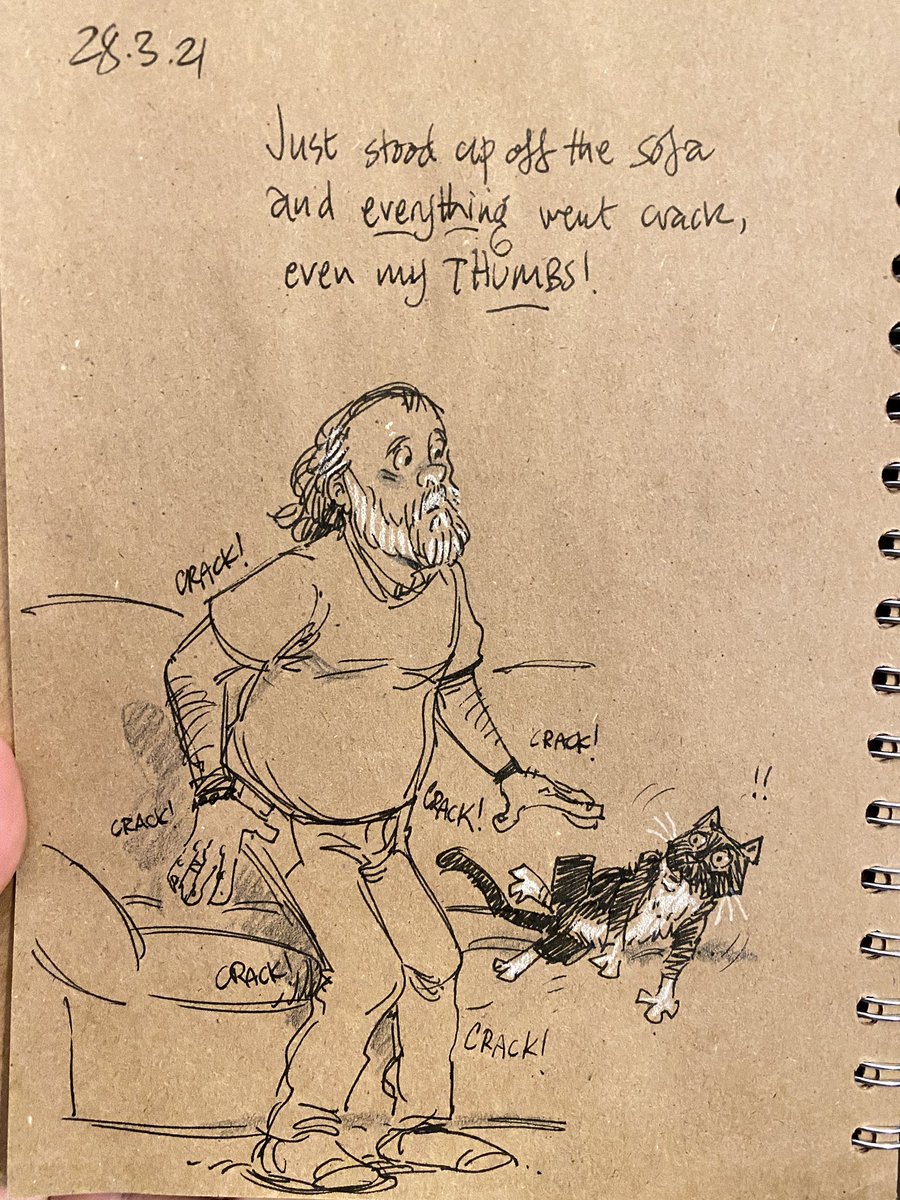 28.3.21
Just stood up off the sofa
and everything went crack,
even my THUMBS!
CRACK!
CRACK!
CRACK!
CRACK!
!!
CRACK!
CRACK!